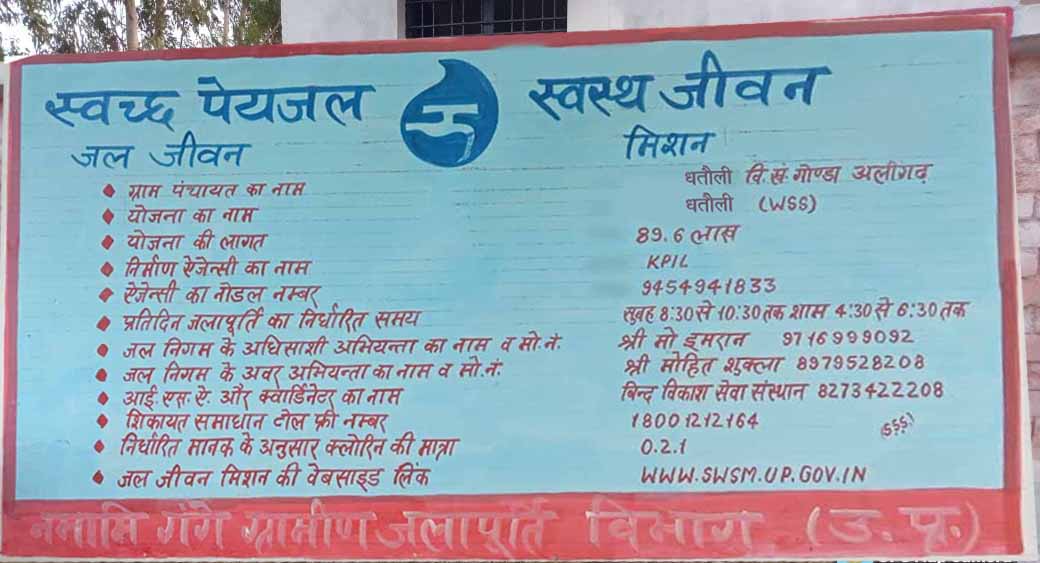 स्वच्छ पेयजल स्वस्थ जीवन
जल जीवन मिशन
ग्राम पंचायत का नाम धतौली वि.खं. गोण्डा अलीगढ़
योजना का नाम धतौली (WSS)
योजना की लागत 89.6 लाख
निर्माण ऐजेन्सी का नाम KPIL
ऐजेन्सी का नोडल नम्बर 9454941833
प्रतिदिन जलापूर्ति का निर्धारित समय सुबह 8:30 से 10:30 तक शाम 4:30 से 6:30 तक
जल निगम के अधिसाशी अभियन्ता का नाम व मो.नं. श्री मो इमरान 9716999092
जल निगम के अवर अभियन्ता का नाम व मो.नं. श्री मोहित शुक्ला 8979528208
आई.एस.ऐ. और क्वार्डिनेटर का नाम बिन्द विकाश सेवा संस्थान 8273422208
शिकायत समाधान टोल फ्री नम्बर 18001212164
निर्धारित मानक के अनुसार क्लोरिन की मात्रा 0.2.1
जल जीवन मिशन की वेबसाइड लिंक WWW.SWSM.UP.GOV.IN
नमामि गंगे ग्रामीण जलापूर्ति विभाग (उ.प्र.)